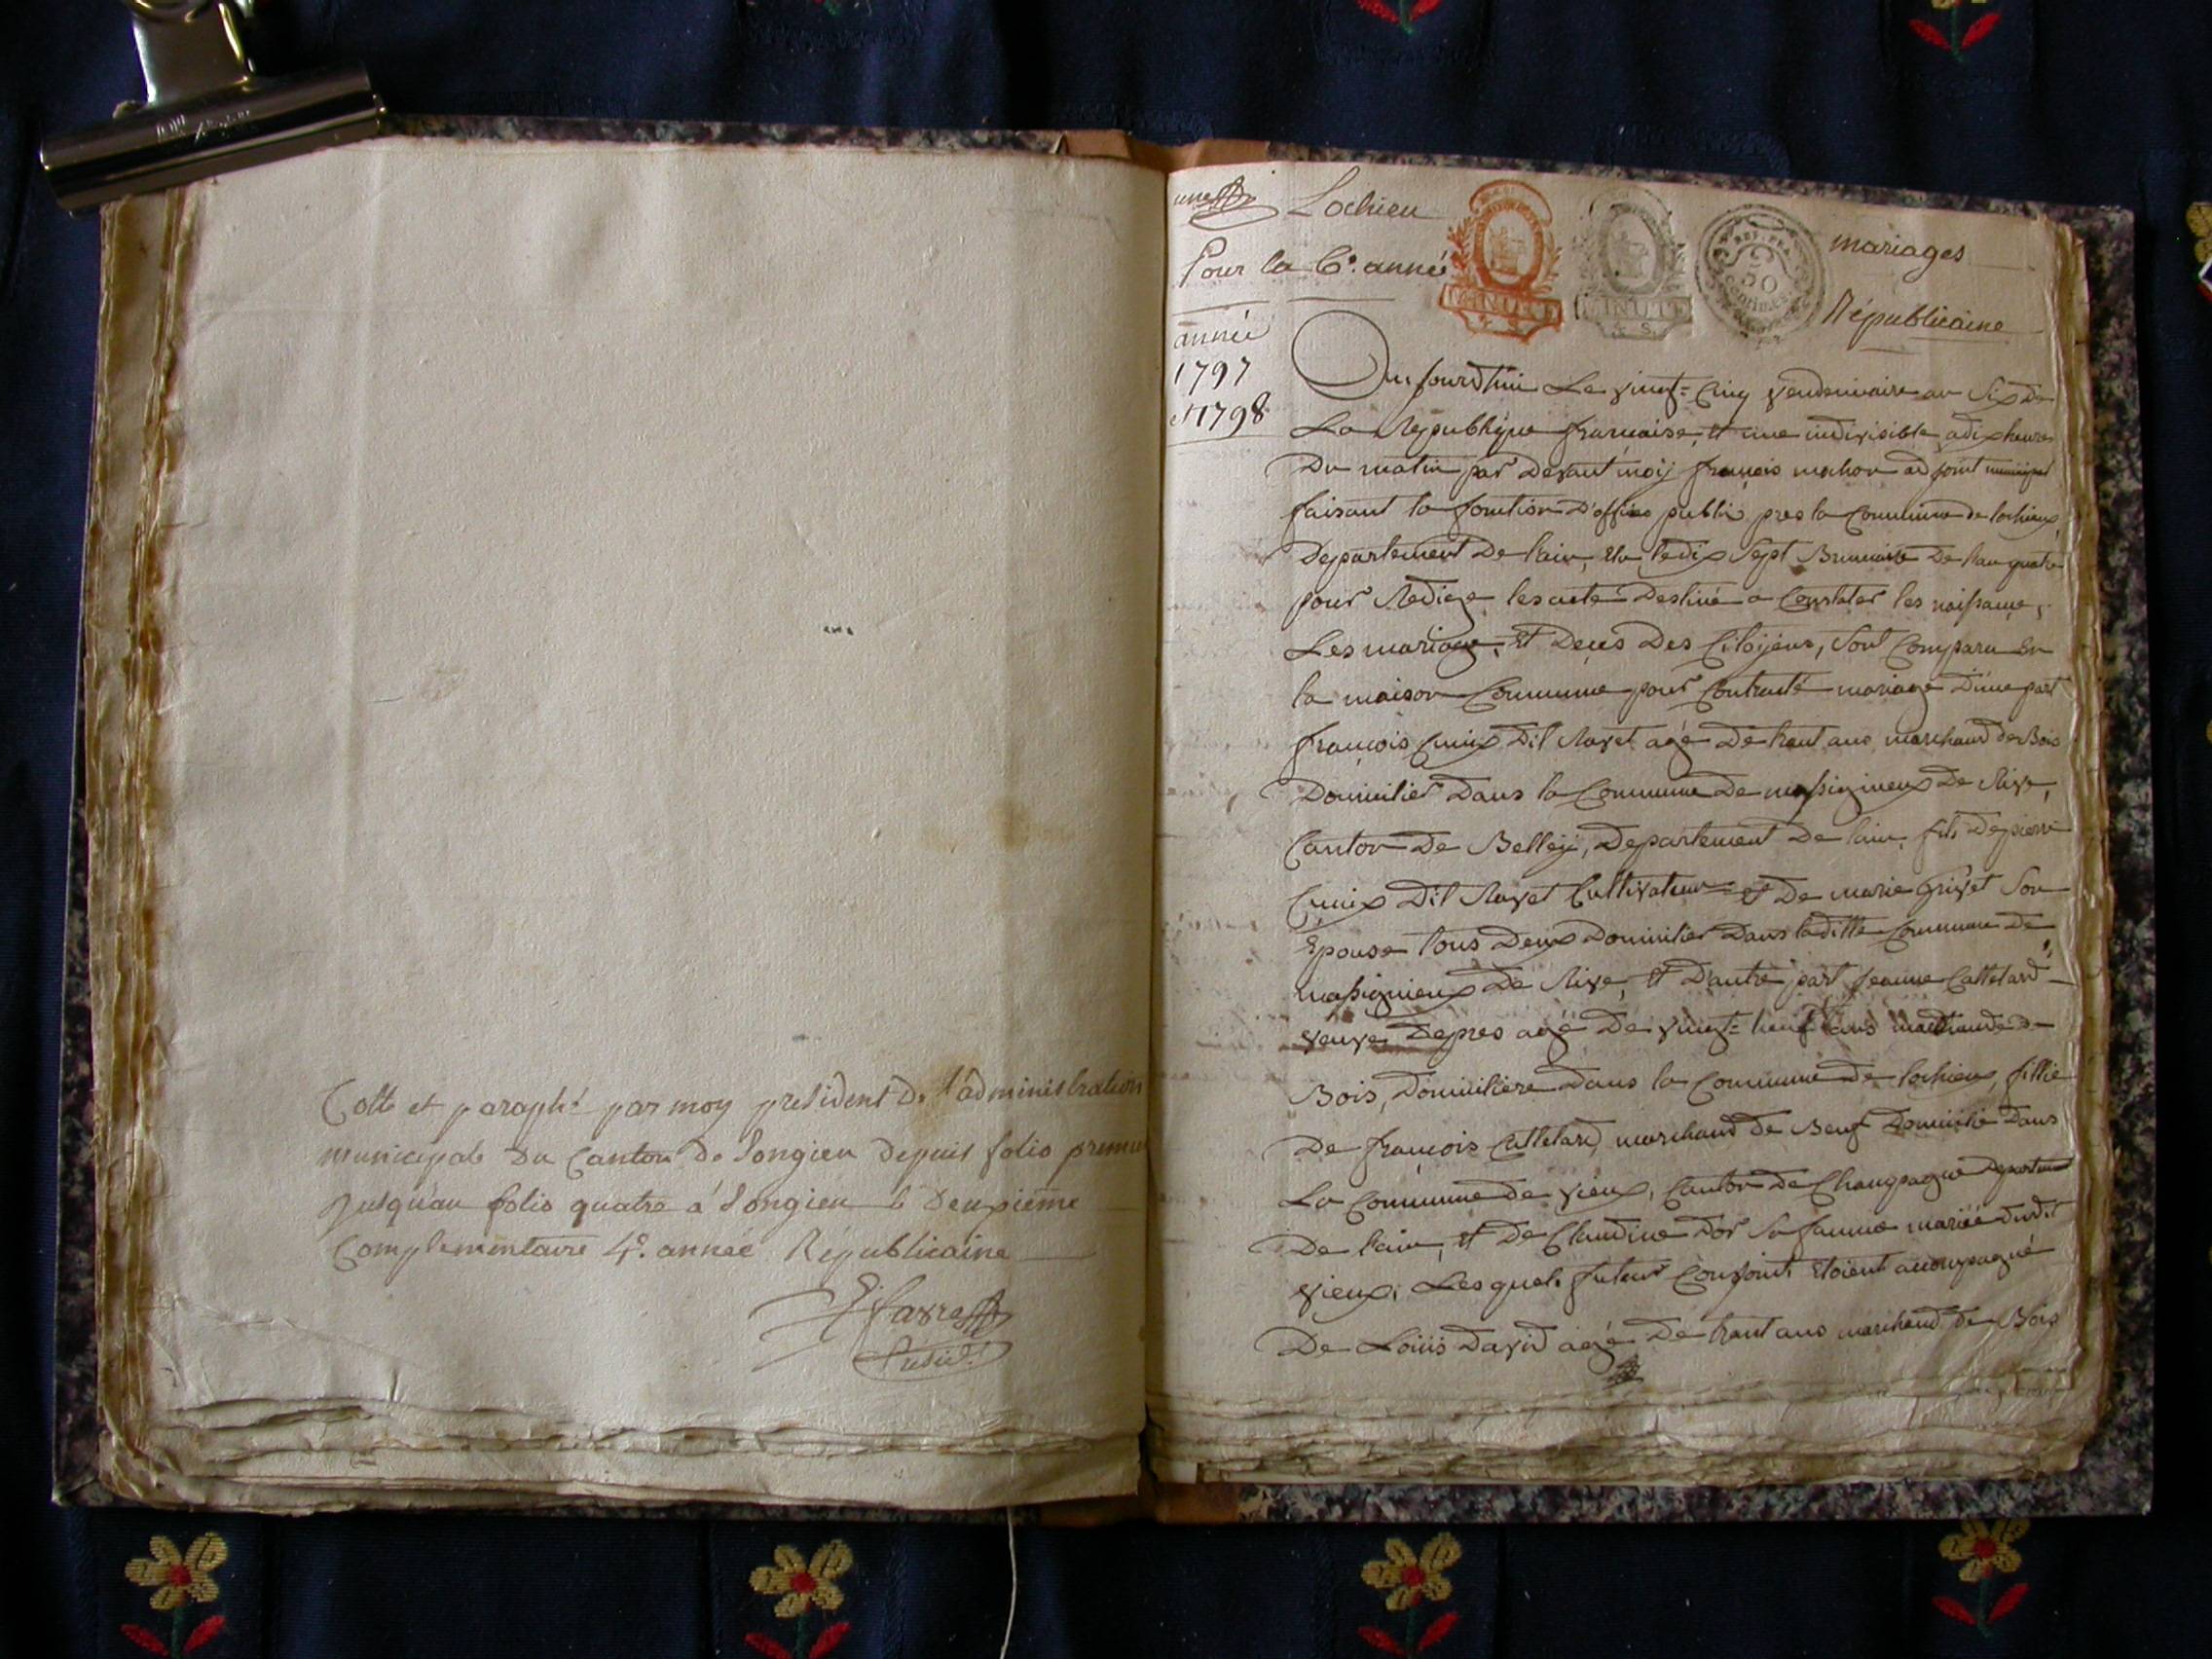 Cotté et paraphé par moy president de l'administration
municipale du Canton de Songieu depuis folio premier
Jusqu'au folio quatre à Songieu le deuxieme
Complementaire 4e. année Républicaine
Favre
Présid.t
une Lochieu
mariages
Pour la 6e. année
Républicaine
MINUTE
4 S.
MINUTE
4 S.
REP. FRA.
50
centimes
année
1797
et 1798
Aujourdhui Le vingt=Cinq vendemiaire an Six De
La Republique francaise, et une indivisible, a dix heures
Du matin par Devant moÿ françois mochon adjoint municipal
faisant la fonction D'officie public pres la Commune de lochieux
Departement De l'ain, Elu le dix Sept Brumaire De l'an quatre
pour Redige les acte Destiné a Constater les naissance,
Les mariage, et Deces Des Citoÿens, Sont Comparu En
la maison Commune pour Contracté mariage D'une part
françois Cunix Dit Ravet agé De trent ans marchand de Bois
Domicilier Dans la Commune De massignieux De Rive,
Canton De Belleÿ, Departement De lain, fils De pierre
Cunix Dit Ravet Cultivateur et De marie Grivet Son
Epouse tous Deux Domicilier Dans laditte Commune De
massignieux De Rive, et D'autre part Jeanne Cattelard
veuve Depres agé De vingt=huit ans marchande De
Bois, Domiciliere Dans la Commune De lochieux, fillie
De françois Cattelard, marchand de Beuf Domicilié Dans
La Commune de vieux, Canton De Champagne Departement
De l'ain, et De Claudine Dor Sa famme mariée Dudit
vieux, Lesquels futeur Conjoint Etoient accompagné
De Loüis David agé De trant ans marchand De Bois